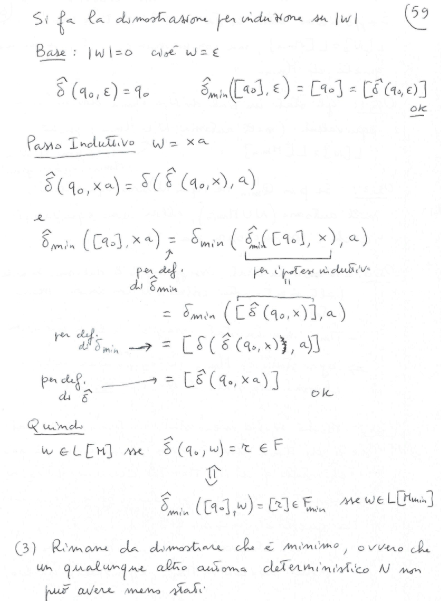 Si fa la dimostrazione per induzione su |w| (59
Base : |w|=0 cioè w=ε
δ̂(q₀,ε)=q₀ δ̂min([q₀],ε)=[q₀]=[δ̂(q₀,ε)]
OK
Passo Induttivo w = xa
δ̂(q₀,xa)=δ(δ̂(q₀,x),a)
e
δ̂min([q₀],xa) = δmin(δ̂min([q₀],x),a)
per def. di δ̂min per ipotesi induttiva
= δmin([δ̂(q₀,x)],a)
per def. di δmin → = [δ(δ̂(q₀,x),a)]
per def. di δ̂ → = [δ̂(q₀,xa)]
OK
Quindi
w∈L[M] sse δ̂(q₀,w)=r∈F
⇕
δ̂min([q₀],w)=[r]∈Fmin sse w∈L[Mmin]
(3) Rimane da dimostrare che è minimo, ovvero che
un qualunque altro automa deterministico N non
può avere meno stati